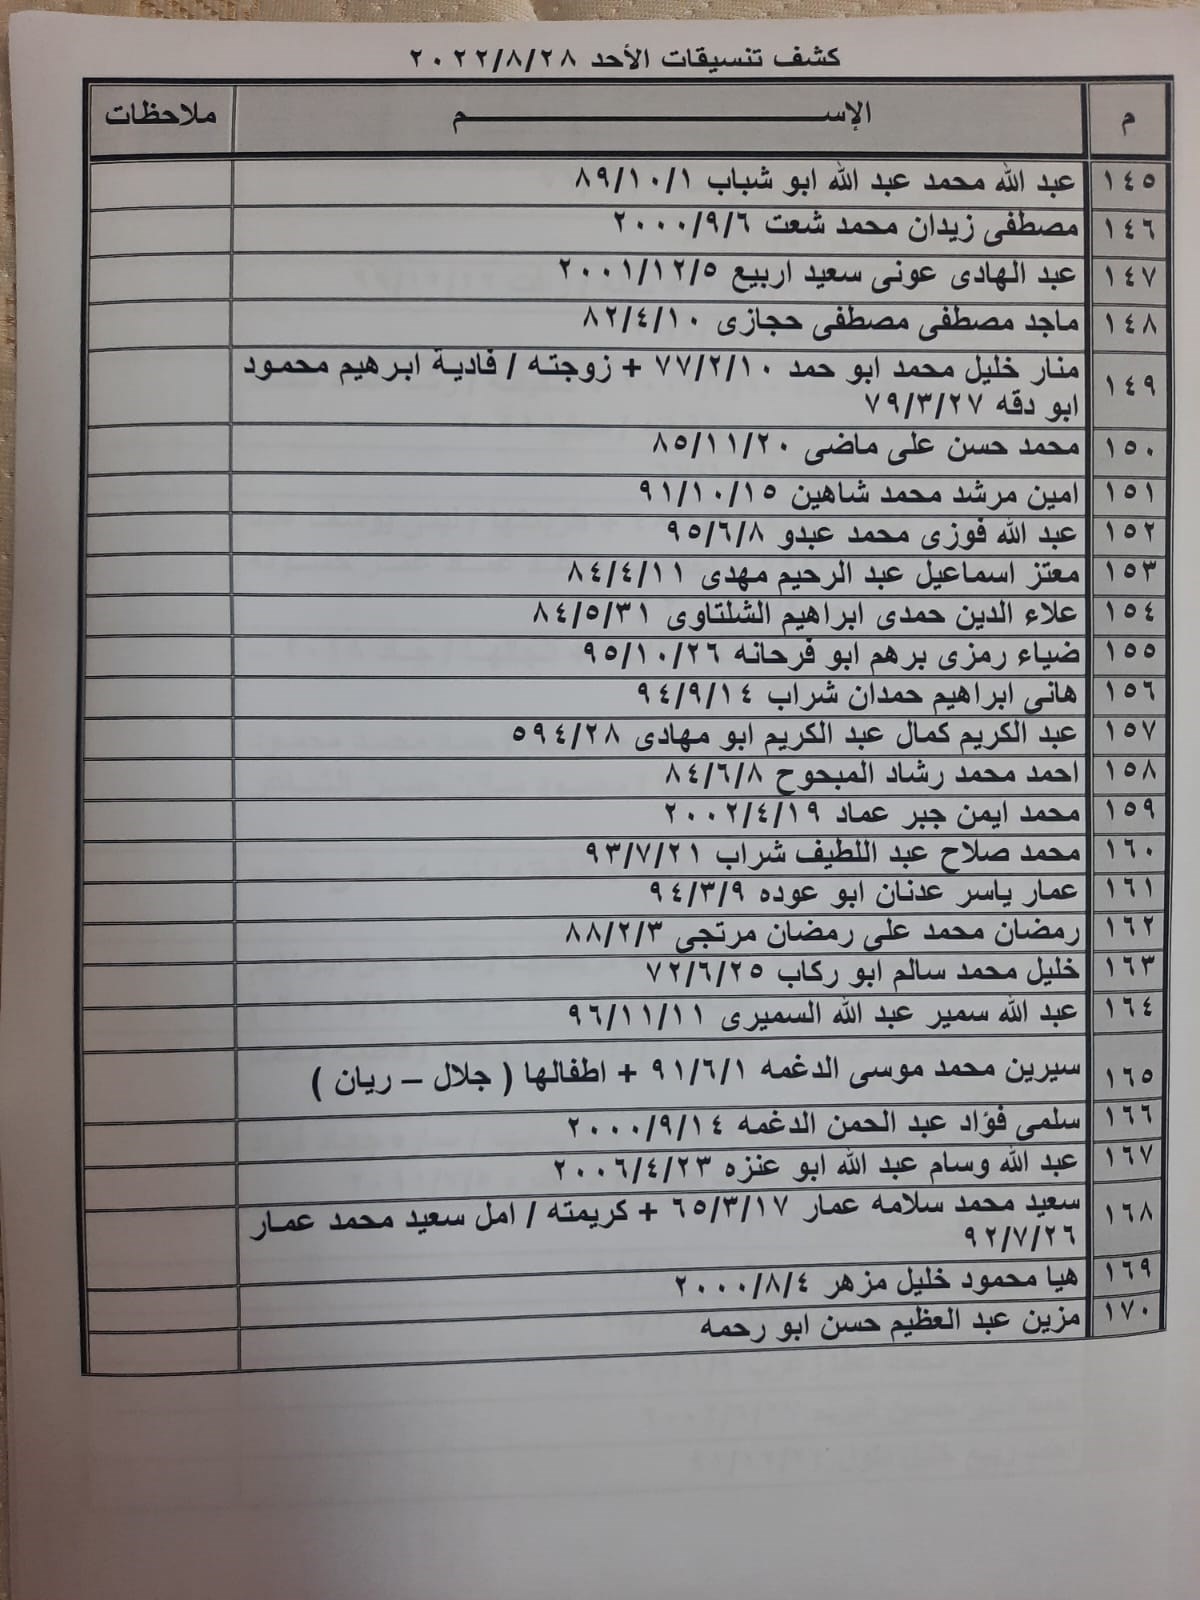 كشف تنسيقات الأحد ٢٠٢٢/٨/٢٨
م الإســــــم ملاحظات
١٤٥ عبد الله محمد عبد الله ابو شباب ٨٩/١٠/١
١٤٦ مصطفى زيدان محمد شعت ٢٠٠٠/٩/٦
١٤٧ عبد الهادى عونى سعيد اربيع ٢٠٠١/١٢/٥
١٤٨ ماجد مصطفى مصطفى حجازى ٨٢/٤/١٠
١٤٩ منار خليل محمد ابو حمد ٧٧/٢/١٠ + زوجته / فادية ابرهيم محمود
ابو دقه ٧٩/٣/٢٧
١٥٠ محمد حسن على ماضى ٨٥/١١/٢٠
١٥١ امين مرشد محمد شاهين ٩١/١٠/١٥
١٥٢ عبد الله فوزى محمد عبدو ٩٥/٦/٨
١٥٣ معتز اسماعيل عبد الرحيم مهدى ٨٤/٤/١١
١٥٤ علاء الدين حمدى ابراهيم الشلتاوى ٨٤/٥/٣١
١٥٥ ضياء رمزى برهم ابو فرحانه ٩٥/١٠/٢٦
١٥٦ هانى ابراهيم حمدان شراب ٩٤/٩/١٤
١٥٧ عبد الكريم كمال عبد الكريم ابو مهادى ٥٩٤/٢٨
١٥٨ احمد محمد رشاد المبحوح ٨٤/٦/٨
١٥٩ محمد ايمن جبر عماد ٢٠٠٢/٤/١٩
١٦٠ محمد صلاح عبد اللطيف شراب ٩٣/٧/٢١
١٦١ عمار ياسر عدنان ابو عوده ٩٤/٣/٩
١٦٢ رمضان محمد على رمضان مرتجى ٨٨/٢/٣
١٦٣ خليل محمد سالم ابو ركاب ٧٢/٦/٢٥
١٦٤ عبد الله سمير عبد الله السميرى ٩٦/١١/١١
١٦٥ سيرين محمد موسى الدغمه ٩١/٦/١ + اطفالها ( جلال – ريان )
١٦٦ سلمى فؤاد عبد الحمن الدغمه ٢٠٠٠/٩/١٤
١٦٧ عبد الله وسام عبد الله ابو عنزه ٢٠٠٦/٤/٢٣
١٦٨ سعيد محمد سلامه عمار ٦٥/٣/١٧ + كريمته / امل سعيد محمد عمار
٩٢/٧/٢٦
١٦٩ هيا محمود خليل مزهر ٢٠٠٠/٨/٤
١٧٠ مزين عبد العظيم حسن ابو رحمه